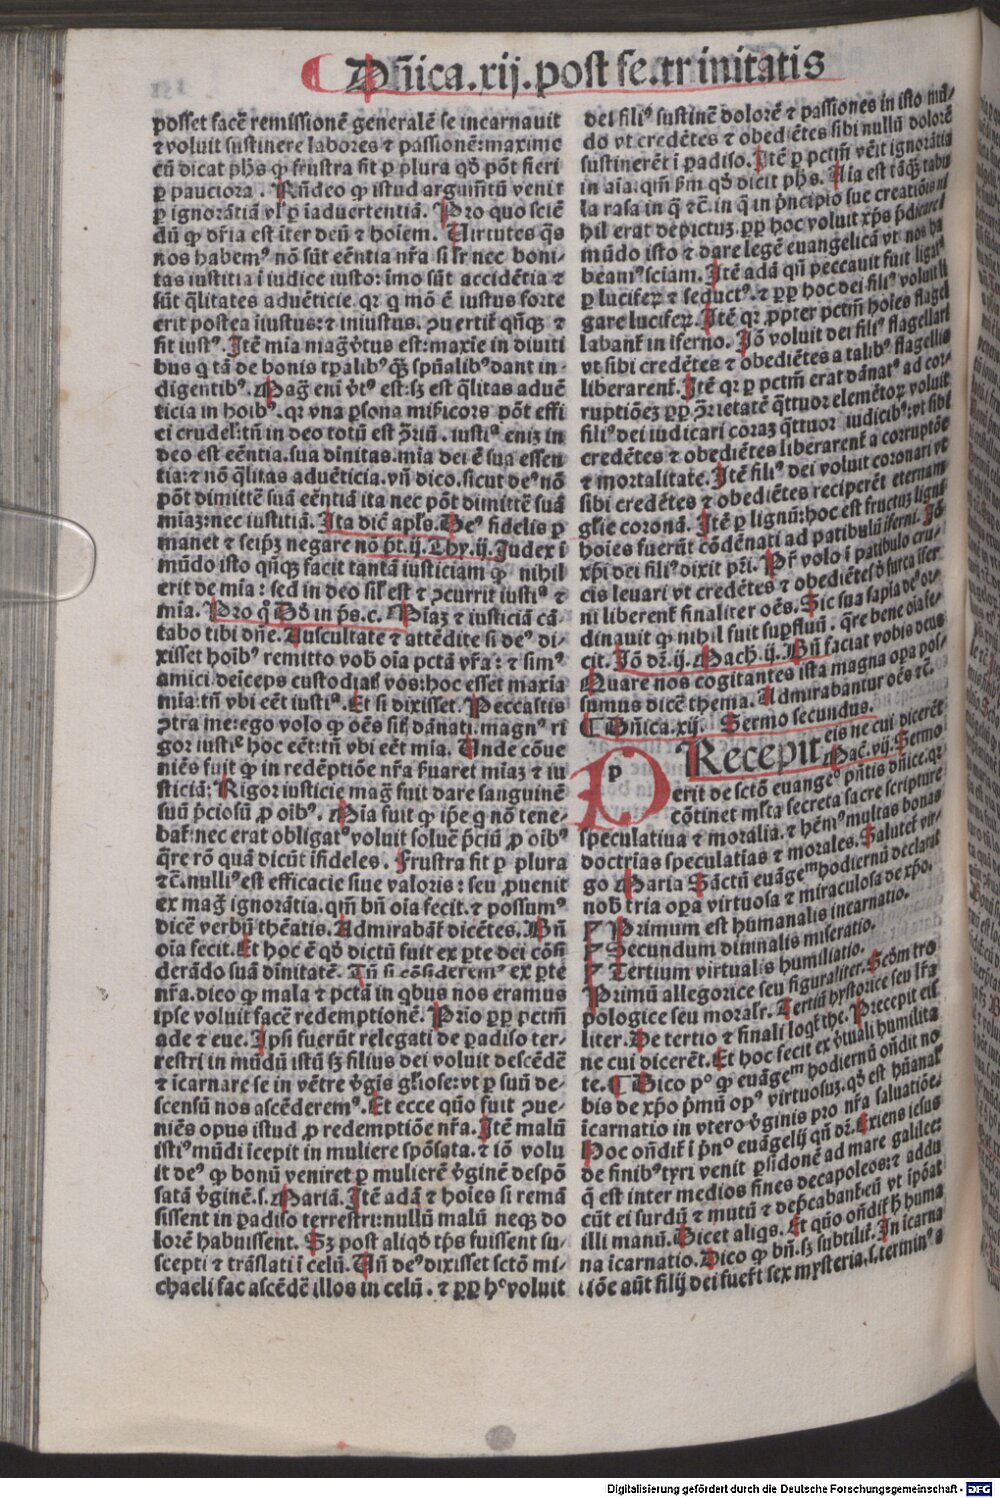 Dñica.xij.post fe.trinitatis
posset facẽ remissionẽ generalẽ se incarnauit
⁊ voluit sustinere labores ⁊ passionẽ: maxime
cũ dicat phs ꝙ frustra fit ꝑ plura qď põt fieri
ꝑ pauciora. Rñdeo ꝙ istud argumẽtũ venit
ꝑ ignorãtiã vl' ꝑ ĩaduertentiã. Pro quo sciẽ
dũ ꝙ dr̃ia est ĩter deũ ⁊ hoĩem. Uirtutes q̃s
nos habemꝰ nõ sũt eẽntia nr̃a sil'r nec boni-
tas iustitia ĩ iudice iusto: ĩmo sũt accidẽtia ⁊
sũt q̃litates aduẽticie. qr q mõ ẽ iustus forte
erit postea ĩiustus: ⁊ iniustus. ꝯuertit̃ qñqꝫ ⁊
fit iustꝰ. Itẽ mia mag̃ v̓tus est: maxĩe in diuiti
bus q tã de bonis tꝑalibꝰ qꝫ̃ spũalibꝰ dant in-
digentibꝰ. Mag̃ eni v̓tꝰ est: sꝫ est q̃litas aduẽ
ticia in hoibꝰ. qr vna ꝑsona mis̃icors põt effi
ci crudel': tñ in deo totũ est ꝯr̃iũ. iustiꝰ enĩꝫ in
deo est eẽntia. sua diũnitas. mia dei ẽ sua essen
tia: ⁊ nõ q̃litas aduẽticia. vñ dico. sicut deꝰ nõ
põt dimittẽ suã eẽntiã ita nec põt dimittẽ suã
miaꝫ: nec iustitiã. Ita dic̃ apl's. Deꝰ fidelis ꝑ
manet ⁊ seipꝫ negare nõ p̃t. ij. Thy. ij. Judex ĩ
mũdo isto qñqꝫ facit tantã iusticiam ꝙ nihil
erit de mia: sed in deo sil' est ⁊ ꝯcurrit iustiꝰ ⁊
mia. Pro q̃ Dď in p̃s. c. Miaꝫ ⁊ iusticiã cã-
tabo tibi dñe. Auscultate ⁊ attẽdite si deꝰ di-
xisset hoĩbꝰ remitto vob̃ oĩa pctã vr̃a: ⁊ simꝰ
amici deĩceps custodiaʒ vos: hoc esset maxĩa
mia: tñ vbi eẽt iustiꝰ. Et si dixisset. Peccastis
ꝯtra me: ego volo ꝙ oẽs sit̃ dãnati. magnꝰ ri
gor iustiꝰ hoc eẽt: tñ vbi eẽt mia. Unde cõue
niẽs fuit ꝙ in redẽptiõe nr̃a ẽuaret miaꝫ ⁊ iu
sticiã: Rigor iusticie mag̃ fuit dare sanguinẽ
suũ p̃ciosũ ꝓ oibꝰ. Mia fuit ꝙ ip̃e q nõ tene-
bat̃: nec erat obligatꝰ voluit soluẽ p̃ciũ ꝓ oibꝰ
q̃re rõ quã dicũt ĩfideles. Frustra fit ꝑ plura
⁊c̃. nulliꝰ est efficacie siue valoris: seu ꝓuenit
ex mag̃ ignorãtia. qm̃ bñ oĩa fecit. ⁊ possumꝰ
dicẽ verbũ thẽatis. Admirabãt̃ dicẽtes. Bñ
oĩa fecit. Et hoc ẽ qď dictũ fuit ex ꝑte dei cõsi
derãdo suã diũnitatẽ. Tñ si cõsideremꝰ ex ꝑte
nr̃a. dico ꝙ mala ⁊ pctã in qbus nos eramus
ipse voluit facẽ redemptionẽ. Prĩo ꝓꝑ pctm̃
ade ⁊ eue. Ipsi fuerũt relegati de ꝑadiso ter-
restri in mũdũ istũ sꝫ filius dei voluit descẽdẽ
⁊ ĩcarnare se in vẽtre v̓gis gl'iose: vt ꝑ suũ de-
scensũ nos ascẽderemꝰ. Et ecce quõ fuit ꝯue-
niẽs opus istud ꝓ redemptiõe nr̃a. Itẽ malũ
istiꝰ mũdi ĩcepit in muliere spõsata. ⁊ iõ volu
it deꝰ ꝙ bonũ veniret ꝑ mulierẽ v̓ginẽ despõ
satã v̓ginẽ. s. Mariã. Itẽ adã ⁊ hoĩes si remã
sissent in ꝑadiso terrestri: nullũ malũ neqꝫ do
lorẽ habuissent. Sꝫ post aliqď tp̃s fuissent su-
scepti ⁊ trãslati ĩ celũ. Uñ deꝰ dixisset sctõ mi-
chaeli fac ascẽdẽ illos in celũ. ⁊ ꝓꝑ hͨ voluit
dei filiꝰ sustinẽ dolorẽ ⁊ passiones in isto mũ-
do vt credẽtes ⁊ obediẽtes sibi nullũ dolorẽ
sustinerẽt ĩ padiso. Itẽ ꝑ pctm̃ vẽit ignorãtia
in aĩa: qm̃ ẽm qď dicit phs. Aĩa est tãqꝫ̃ tabu
la rasa in q̃ ⁊c̃. in q̃ in p̃ncipio sue creatiõis ni
hil erat depictuꝫ ꝓꝑ hoc voluit xp̃s p̃dicare ĩ
mũdo isto ⁊ dare legẽ euangelicã vt nos ha
beamꝰ sciam. Itẽ adã qñ peccauit fuit ligatꝰ
ꝑ lucifeꝝ ⁊ seductꝰ. ⁊ ꝓꝑ hoc dei filiꝰ voluit li
gare lucifeꝝ. Itẽ qr ꝓpter pctm̃ hoĩes flagel
labant̃ in ĩferno. Jõ voluit dei filiꝰ flagellari
vt sibi credẽtes ⁊ obediẽtes a talibꝰ flagellis
liberarent̃. Itẽ qr ꝑ pctm̃ erat dãnatꝰ ad cor-
ruptiõeꝫ ꝓꝑ ꝯr̃ietatẽ q̃ttuor elemẽtoꝝ voluit
filiꝰ dei iudicari coraꝫ q̃ttuor iudicibꝰ: vt sibi
credẽtes ⁊ obediẽtes liberarent̃ a corruptõe
⁊ mortalitate. Itẽ filiꝰ dei voluit coronari vt
sibi credẽtes ⁊ obediẽtes reciperẽt eternam
gl'ie coronã. Itẽ ꝑ lignũ: hoc est fructuꝫ ligni
hoies fuerũt cõdẽnati ad patibulũ ĩferni. Jõ
xp̃i dei filiꝰ dixit pr̃i. Pr̃ volo ĩ patibulo cru-
cis leuari vt credẽtes ⁊ obediẽtes d̓ furca ĩfer
ni liberent̃ finaliter oẽs. Sic sua sapĩa deꝰ or-
dinauit ꝙ nihil fuit suꝑfluũ. q̃re bene oĩa fe-
cit. Jõ dr̃. ij. Mach. ij. Bñ faciat vobis deus
Quare nos cogitantes ista magna oꝑa pos-
sumus dicẽ thema. Admirabantur oẽs ⁊c̃.
Dñica. xij. Sermo secundus.
p
Recepit eis ne cui dicerẽt
Mac̃. vij. Sermo
erit de sctõ euangeꝰ p̃ntis dñice. qr
cõtinet ml'ta secreta sacre scripture
speculatiua ⁊ moralia. ⁊ hẽmꝰ multas bonas
doctrias speculatias ⁊ morales. Salutet̃ vir-
go Maria Sãctũ euãgeᵐ hodiernũ declarat
nob̃ tria oꝑa virtuosa ⁊ miraculosa de xp̃o.
Primum est humanalis incarnatio.
Secundum diuinalis miseratio.
Tertium virtualis humiliatio.
Primũ allegorice seu figuraliter. Scd̃m tro
pologice seu moralr̃. Tertiũ hystorice seu lr̃a
liter. De tertio ⁊ finali loqt̃ the. Precepit eis
ne cui dicerẽt. Et hoc fecit ex v̓tuali humilita
te. Dico pͦ ꝙ euãgeᵐ hodiernũ oñdit no
bis de xp̃o p̃mũ opꝰ virtuosuꝫ. qď est hũanal'
ĩcarnatio in vtero v̓ginis pro nr̃a saluatiõe.
Hoc oñdit̃ ĩ p̃nͦ euãgelij qñ dr̃. Exiens iesus
de finibꝰ tyri venit ꝑ sidonẽ ad mare galilee:
q̃ est inter medios fines decapoleos: ⁊ addu
cũt ei surdũ ⁊ mutũ ⁊ dep̃cabant̃ eũ vt ĩpõat
illi manũ. Dicet aliqs. Et quõ oñdit̃ h̓ huma
na ĩcarnatio. Dico ꝙ bñ. sꝫ subtilit̃. In ĩcarna
tiõe aũt filij dei fuer̃t sex mysteria. s. terminꝰ a
Digitalisierung gefördert durch die Deutsche Forschungsgemeinschaft - DFG